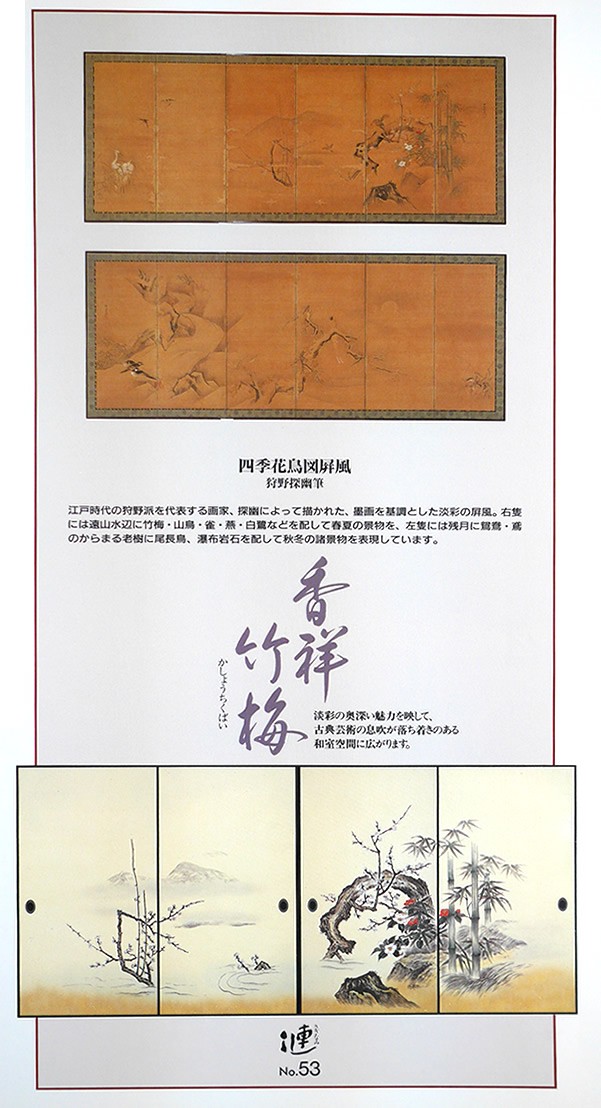 四季花鳥図屏風
狩野探幽筆
江戸時代の狩野派を代表する画家、探幽によって描かれた、墨画を基調とした淡彩の屏風。右隻
には遠山水辺に竹梅・山鳥・雀・燕・白鷺などを配して春夏の景物を、左隻には残月に鴛鴦・蔦
のからまる老樹に尾長鳥、瀑布岩石を配して秋冬の諸景物を表現しています。
香祥
竹梅
かしょうちくばい
淡彩の奥深い魅力を映して、
古典芸術の息吹が落ち着きのある
和室空間に広がります。
漣
さざなみ
No.53